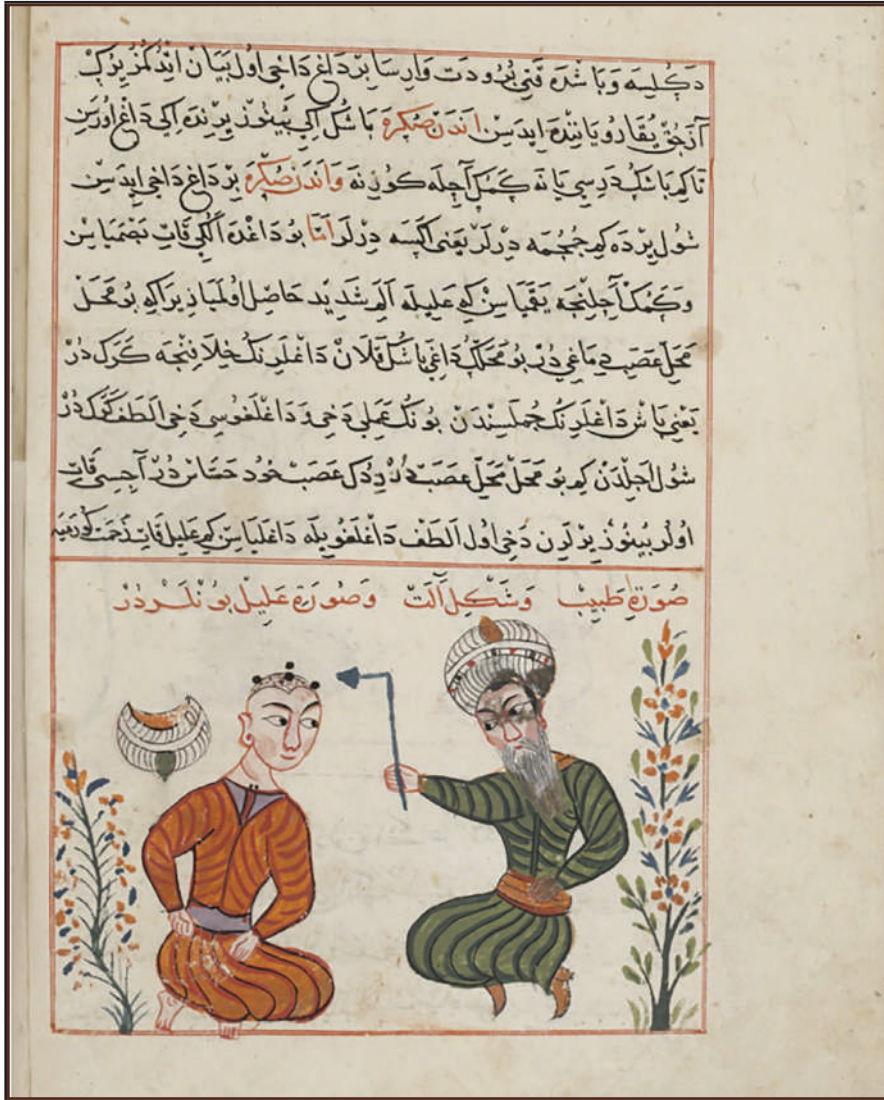 دكلسه وباشده قتي برودت وارسا بر داغ داخي اول بيان اتدكمز يرك
آزجق يقارو ياننده ايدسن اندن صكره باشك اكي بينوز يرنده اكي داغ اورسن
تاكم باشك دريسي يانه كمك آچله كورنه واندن صكره بر داغ داخي ايدسن
شول يرده كم جمجمه ديرلر يعني اكسه ديرلر اما بو داغده الكي قات بصمياسن
وكمك آچلنجه يقمياسن كه عليله الم شديد حاصل اولميا زيرا كه بو محل
محل عصب دماغي در بو محلك داغي باشك قلان داغلرنك خلافنجه كرك در
يعني باش داغلرنك جملسندن بونك عملي دخي و داغلغوسي دخي الطف كرك در
شول اجلدن كم بو محل محل عصب در ددك عصب خود حساس در آجسي قات
اولر بينوز يرلرن دخي اول الطف داغلغويله داغلياسن كم عليل قات زحمت كورميه
صورة طبيب وشكل آلت وصورة عليل بونلردر